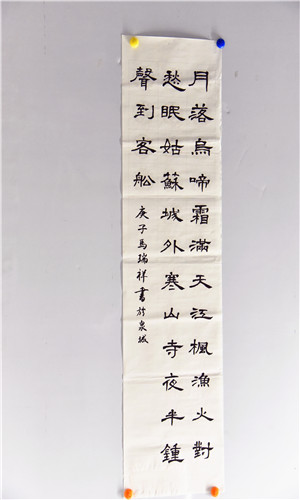 月落烏啼霜滿天江楓漁火對
愁眠姑蘇城外寒山寺夜半鍾
聲到客船
庚子馬瑞祥書於泉城